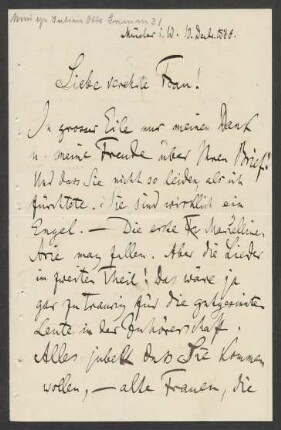 Mus. ep. Julius Otto Grimm 21
Münster i. W. 10. Decbr. 1880.
Liebe verehrte Frau!
In grosser Eile nur meinen Dank
u. meine Freude über Ihren Brief!
Und dass Sie nicht so leiden als ich
fürchtete. Sie sind wirklich ein
Engel. — Die erste Marzelline-
Arie mag fallen. Aber die Lieder
im zweiten Theil! Das wäre ja
gar zu traurig für die gutgesinnten
Leute in der Zuhörerschaft.
Alles jubelt dass Sie kommen
wollen, — alte Frauen, die